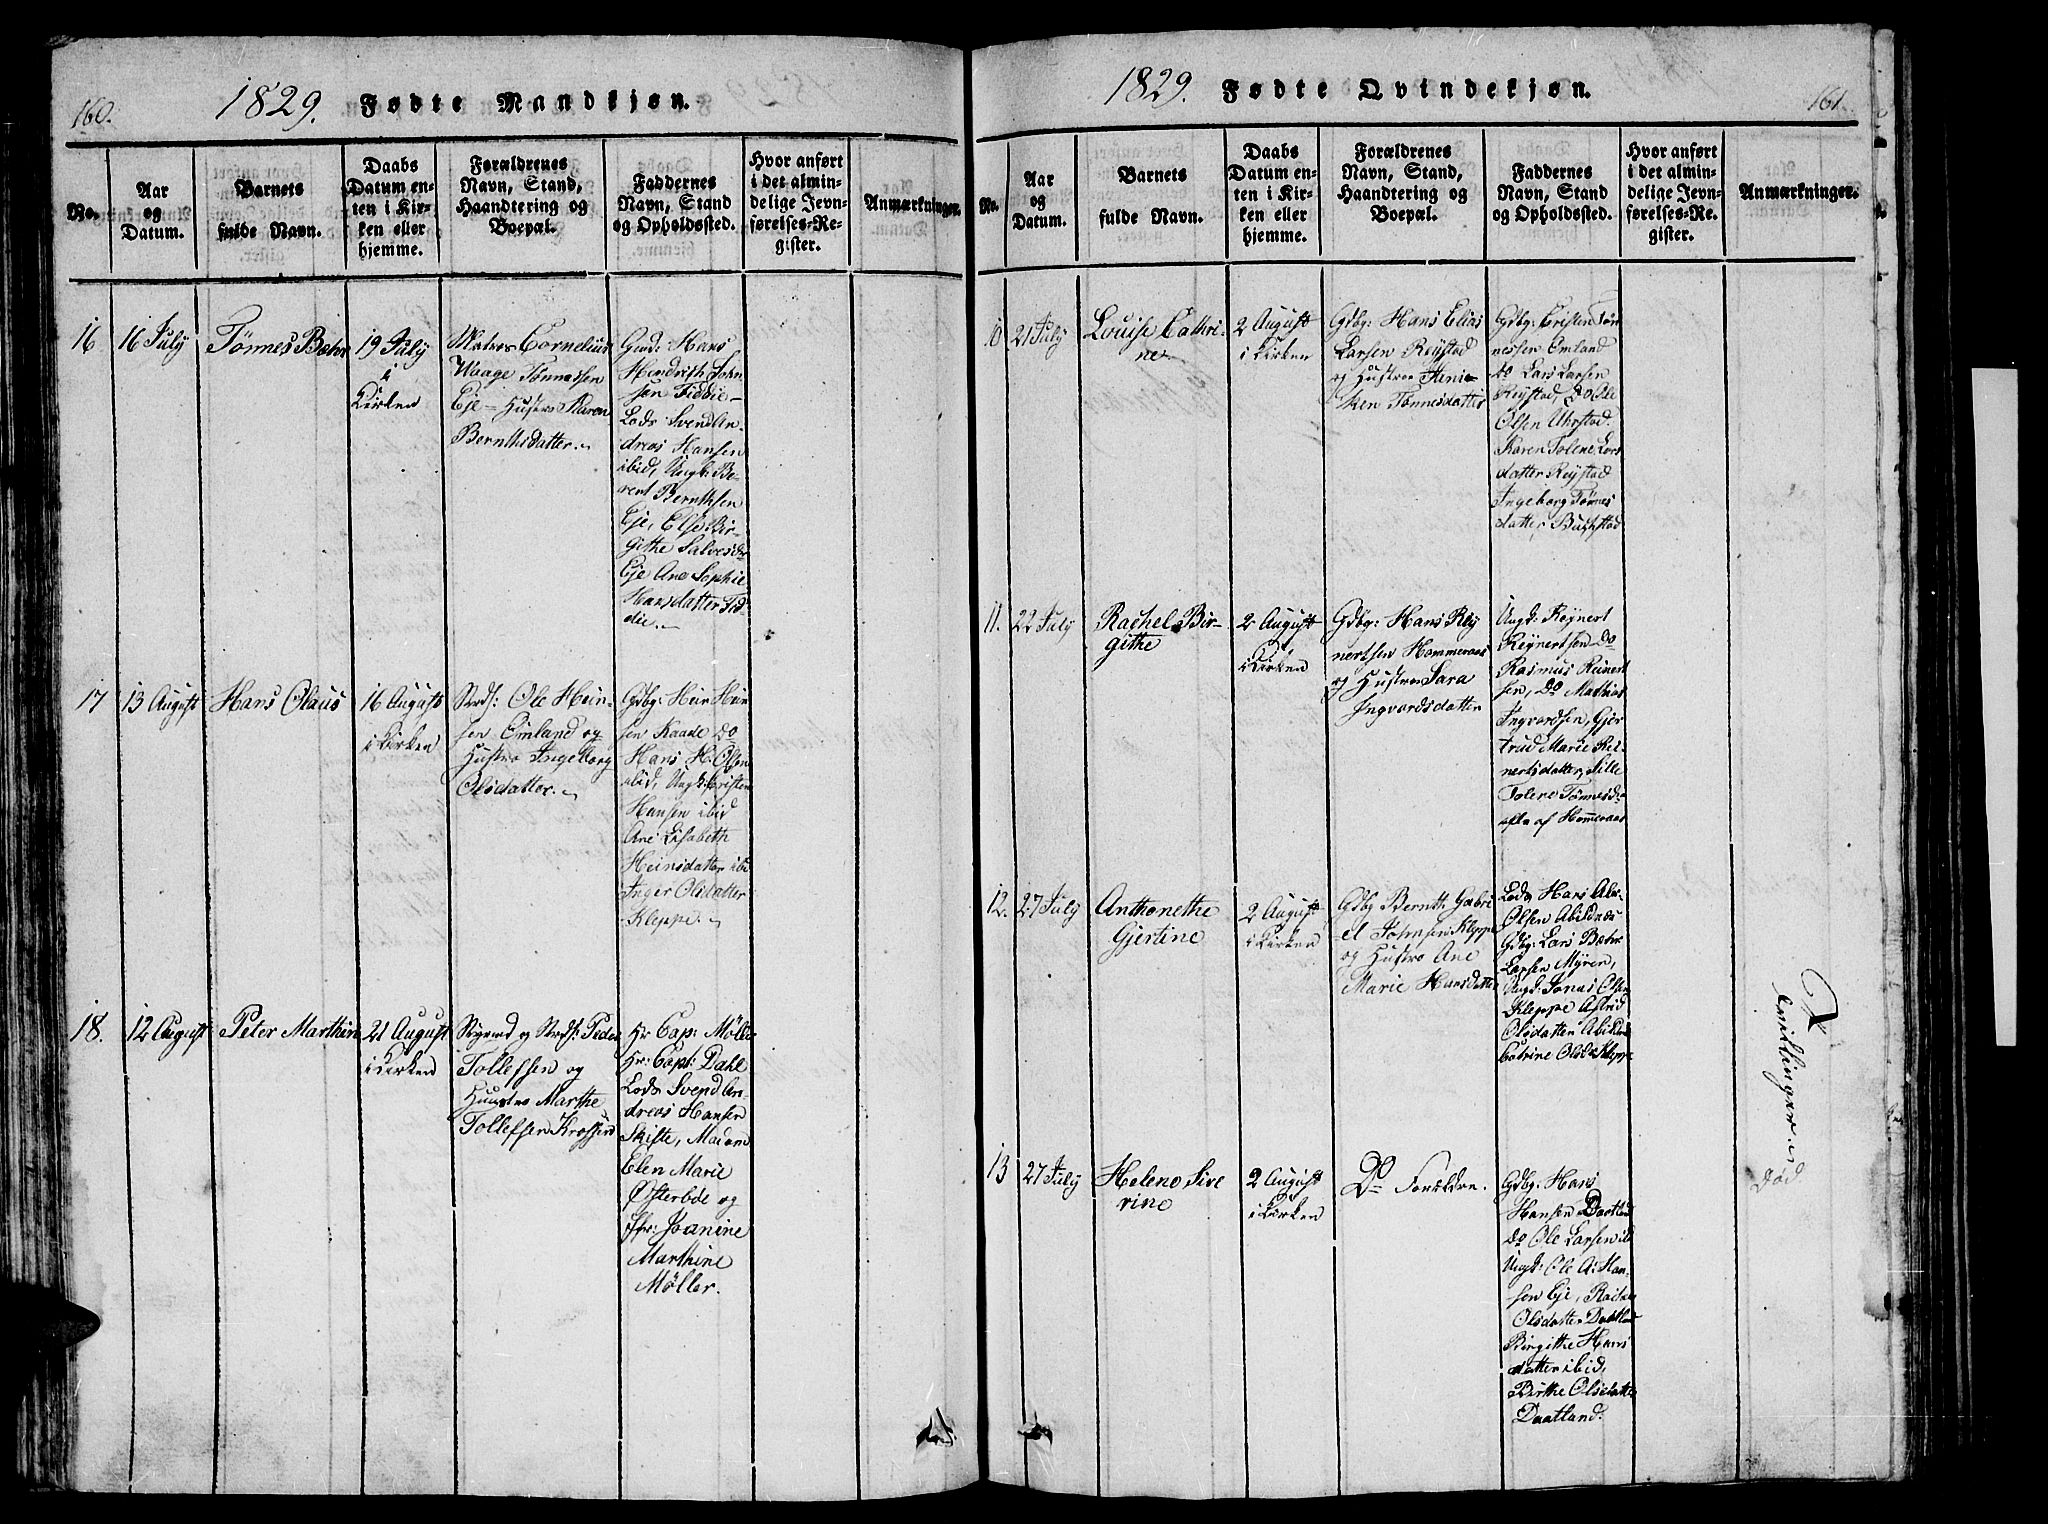 160.
1829. Fødte Mandkjøn.
No.
Aar
og
Datum.
Barnets
fulde Navn.
Daabs
Datum en-
ten i Kir-
ken eller
hjemme.
Forældrenes
Navn, Stand,
Haandtering og
Boepæl.
Faddernes
Navn, Stand
og Opholdssted.
Hvor anført
i det almin-
delige Jevn-
førelses-Re-
gister.
Anmærkninger.
16
16 July
Tønnes Bæhr
19 July
i
Kirken
Matros Cornelius
Waage Tønnessen
Eje – Hustro Karen
Bernthsdatter.
Hans
Hendrich John
sen Fiddie –
Lods Svend An
dreas Hansen
ibid, Ungk: Be-
rent Bernthsen
Eje, Else Bir-
githe Salvesdr
Eje Ane Sophie
Hansdatter Fid
die.
17
13 August
Hans Olaus
16 August
i Kirken
Strds: Ole Hein-
sen Omland og
Hustro Ingeborg
Olsdatter.
Gdbg: Hein Hein
sen Kaade Do
Hans H. Olsen
ibid, Ungk: Cristen
Hansen ibid
Ane Lisabeth
Heinsdatter ibi
Inger Olsdatter
Kleppe.
18.
12 August
Peter Marthin
21 August
i Kirken
og Strds: Peder
Tollefsen og
Hustro Marthe
Tollefsen
Hr Cap: Møller
Hr: Capt: Dahl
Lods Svend An
dreas Hansen
Skifte, Madam
Elen Marie
Østerbøe og
Jfr: Joanine
Marthine
Møller.
1829. Fødte Qvindekjøn.
161.
No.
Aar
og
Datum.
Barnets
fulde Navn.
Daabs
Datum en-
ten i Kir-
ken eller
hjemme.
Forældrenes
Navn, Stand,
Haandtering og
Boepæl.
Faddernes
Navn, Stand
og Opholdssted.
Hvor anført
i det almin-
delige Jevn-
førelses-Re-
gister.
Anmærkninger.
10
21 July
Louise Cathri-
ne
2 August
i Kirken
Gdbg: Hans Elias
Larsen Reystad
og Hustroe Heni-
ken Tønnesdatter
Gdbg: Cristen Tøn
nessen Omland
Do Lars Larsen
Reystad, Do Ole
Olsen Uhrstad.
Karen Tolene Lars
datter Reystad
Ingeborg Tønnes
datter
11.
22 July
Rachel Bir-
githe
2 August
i Kirken
Gdbg: Hans Rey
nertsen Hammeraas
og Hustroe Sara
Ingvardsdatter
Ungd: Reynert
Reynertsen Do
Rasmus Reinert
sen, Do Mathias
Ingvardsen, Gjer
trud Marie Rei-
nertsdatter, Sille
Tolene Tønnesd-
af Hommeraas
12.
27 July
Anthonethe
Gjertine
2 August
i Kirken
Gdbg Bernth Gabri
el Johnsen Kleppe
og Hustro Ane
Marie Hansdatter
Lods Hans Abr-
Olsen Abildnæs
Gdbg: Lars Bæhr
Larsen Myren,
Ungd: Jonas Olsen
Kleppe Astrid
Olsdatter
Catrine Olsd Kleppe
Tvillinger
13
27 July
Helene Sive
rine
2 August
i Kirken
Do Foreldre.
Gdbg: Hans
Hansen Daatland
Do Ole Larsen ib
Ungk: Ole A: Han-
sen Eje,
Olsdatter Daatland
Birgithe Hans
datter ibid,
Birthe Olsdatter
Daatland.
død.